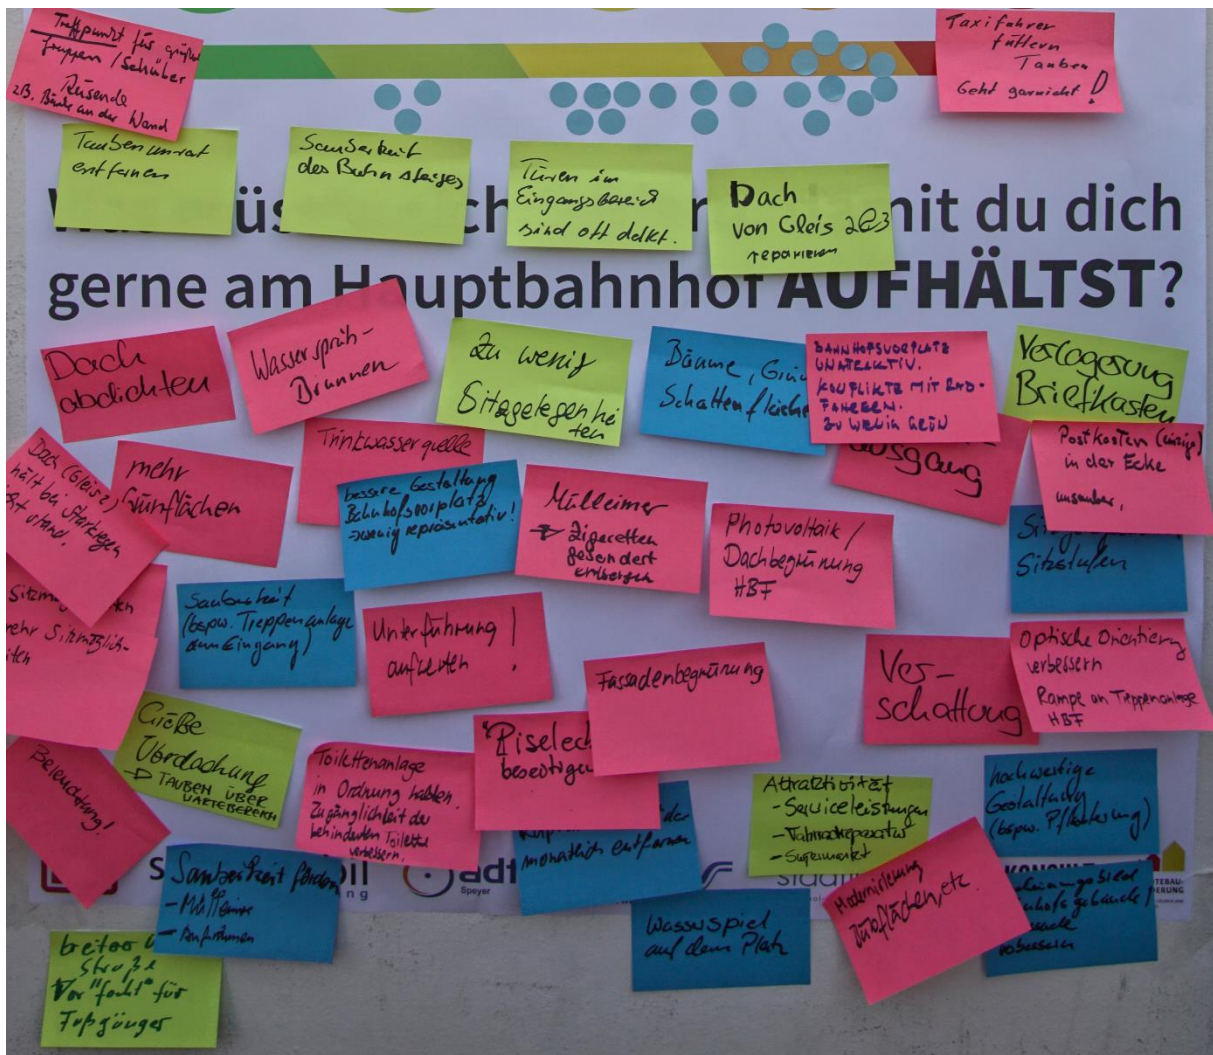 Treffpunkt für größere
Gruppen / Schüler
Reisende
z.B. Bänke an der Wand
Taxifahrer
füttern
Tauben
Geht garnicht!
Taubenunrat
entfernen
Sauberkeit
des Bahnsteiges
Türen im
Eingangsbereich
sind oft defekt.
Dach
von Gleis 2&3
reparieren
mit du dich
gerne am Hauptbahnhof AUFHÄLTST?
Dach
abdichten
Wassersprüh-
Brunnen
Zu wenig
Sitzgelegenhei
ten
Bäume, Grün
Schattenfläche
BAHNHOFSVORPLATZ
UNATTRAKTIV.
KONFLIKTE MIT RAD-
FAHRERN.
ZU WENIG GRÜN
Verlagerung
Briefkasten
Dach (Gleis 2)
hält bei Starkregen
stand.
mehr
Grünflächen
Trinkwasserquelle
bessere Gestaltung
Bahnhofsvorplatz
→ wenig repräsentativ!
Mülleimer
→ Zigaretten
gesondert
entsorgen
Photovoltaik /
Dachbegrünung
HBF
Ausgang
Postkasten (einzige)
in der Ecke
unsauber.
Sitzstufen
mehr Sitzmöglich-
keiten
Sauberkeit
(bspw. Treppenanlage
zum Eingang)
Unterführung
aufwerten !
Fassadenbegrünung
Ver-
schattung
Optische Orientierung
verbessern
Rampe an Treppenanlage
HBF
Beleuchtung!
Größe
Überdachung
→ TAUBEN ÜBER
WARTEBEREICH
Toilettenanlage
in Ordnung halten.
Zugänglichkeit der
behinderten Toilette
verbessern.
"Piseleck
beseitigen
monatlich entfernen
Attraktivität
- Serviceleistungen
- Fahrradreparatur
- Supermarkt
hochwertige
Gestaltung
(bspw. Pflasterung)
Sauberkeit fördern
- Mülleimer
- Aufräumen
adf
Speyer
Wasserspiel
auf dem Platz
Modernisierung
etc.
verbessern
breitere
Straße
Vor "fahrt" für
Fußgänger